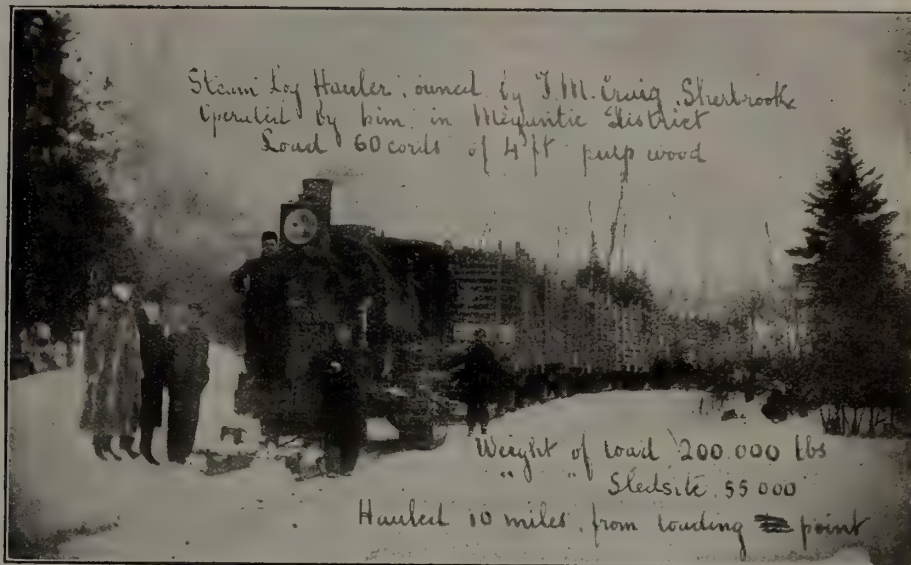 Steam Log Hauler, owned by J.M. Craig, Sherbrooke
Operated by him in Megantic District
Load 60 cords of 4 ft pulp wood
Weight of load 200.000 lbs
" " Sleds 55 000
Hauled 10 miles, from loading point